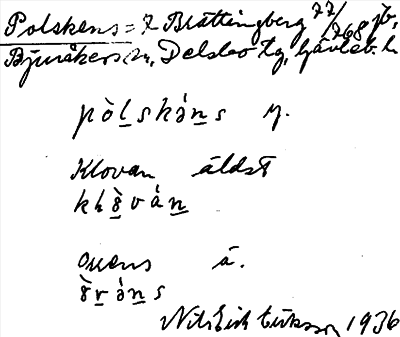 Polskens = 7 Brättingberg 77/768 jb,
Bjuråkers sn, Delsbo tg, Gävleb. l.
pòl̲skə́n̲s y.
Klovan äldst
khò̲ván̲
Ovans ä.
Nils Erik Eriksson 1936